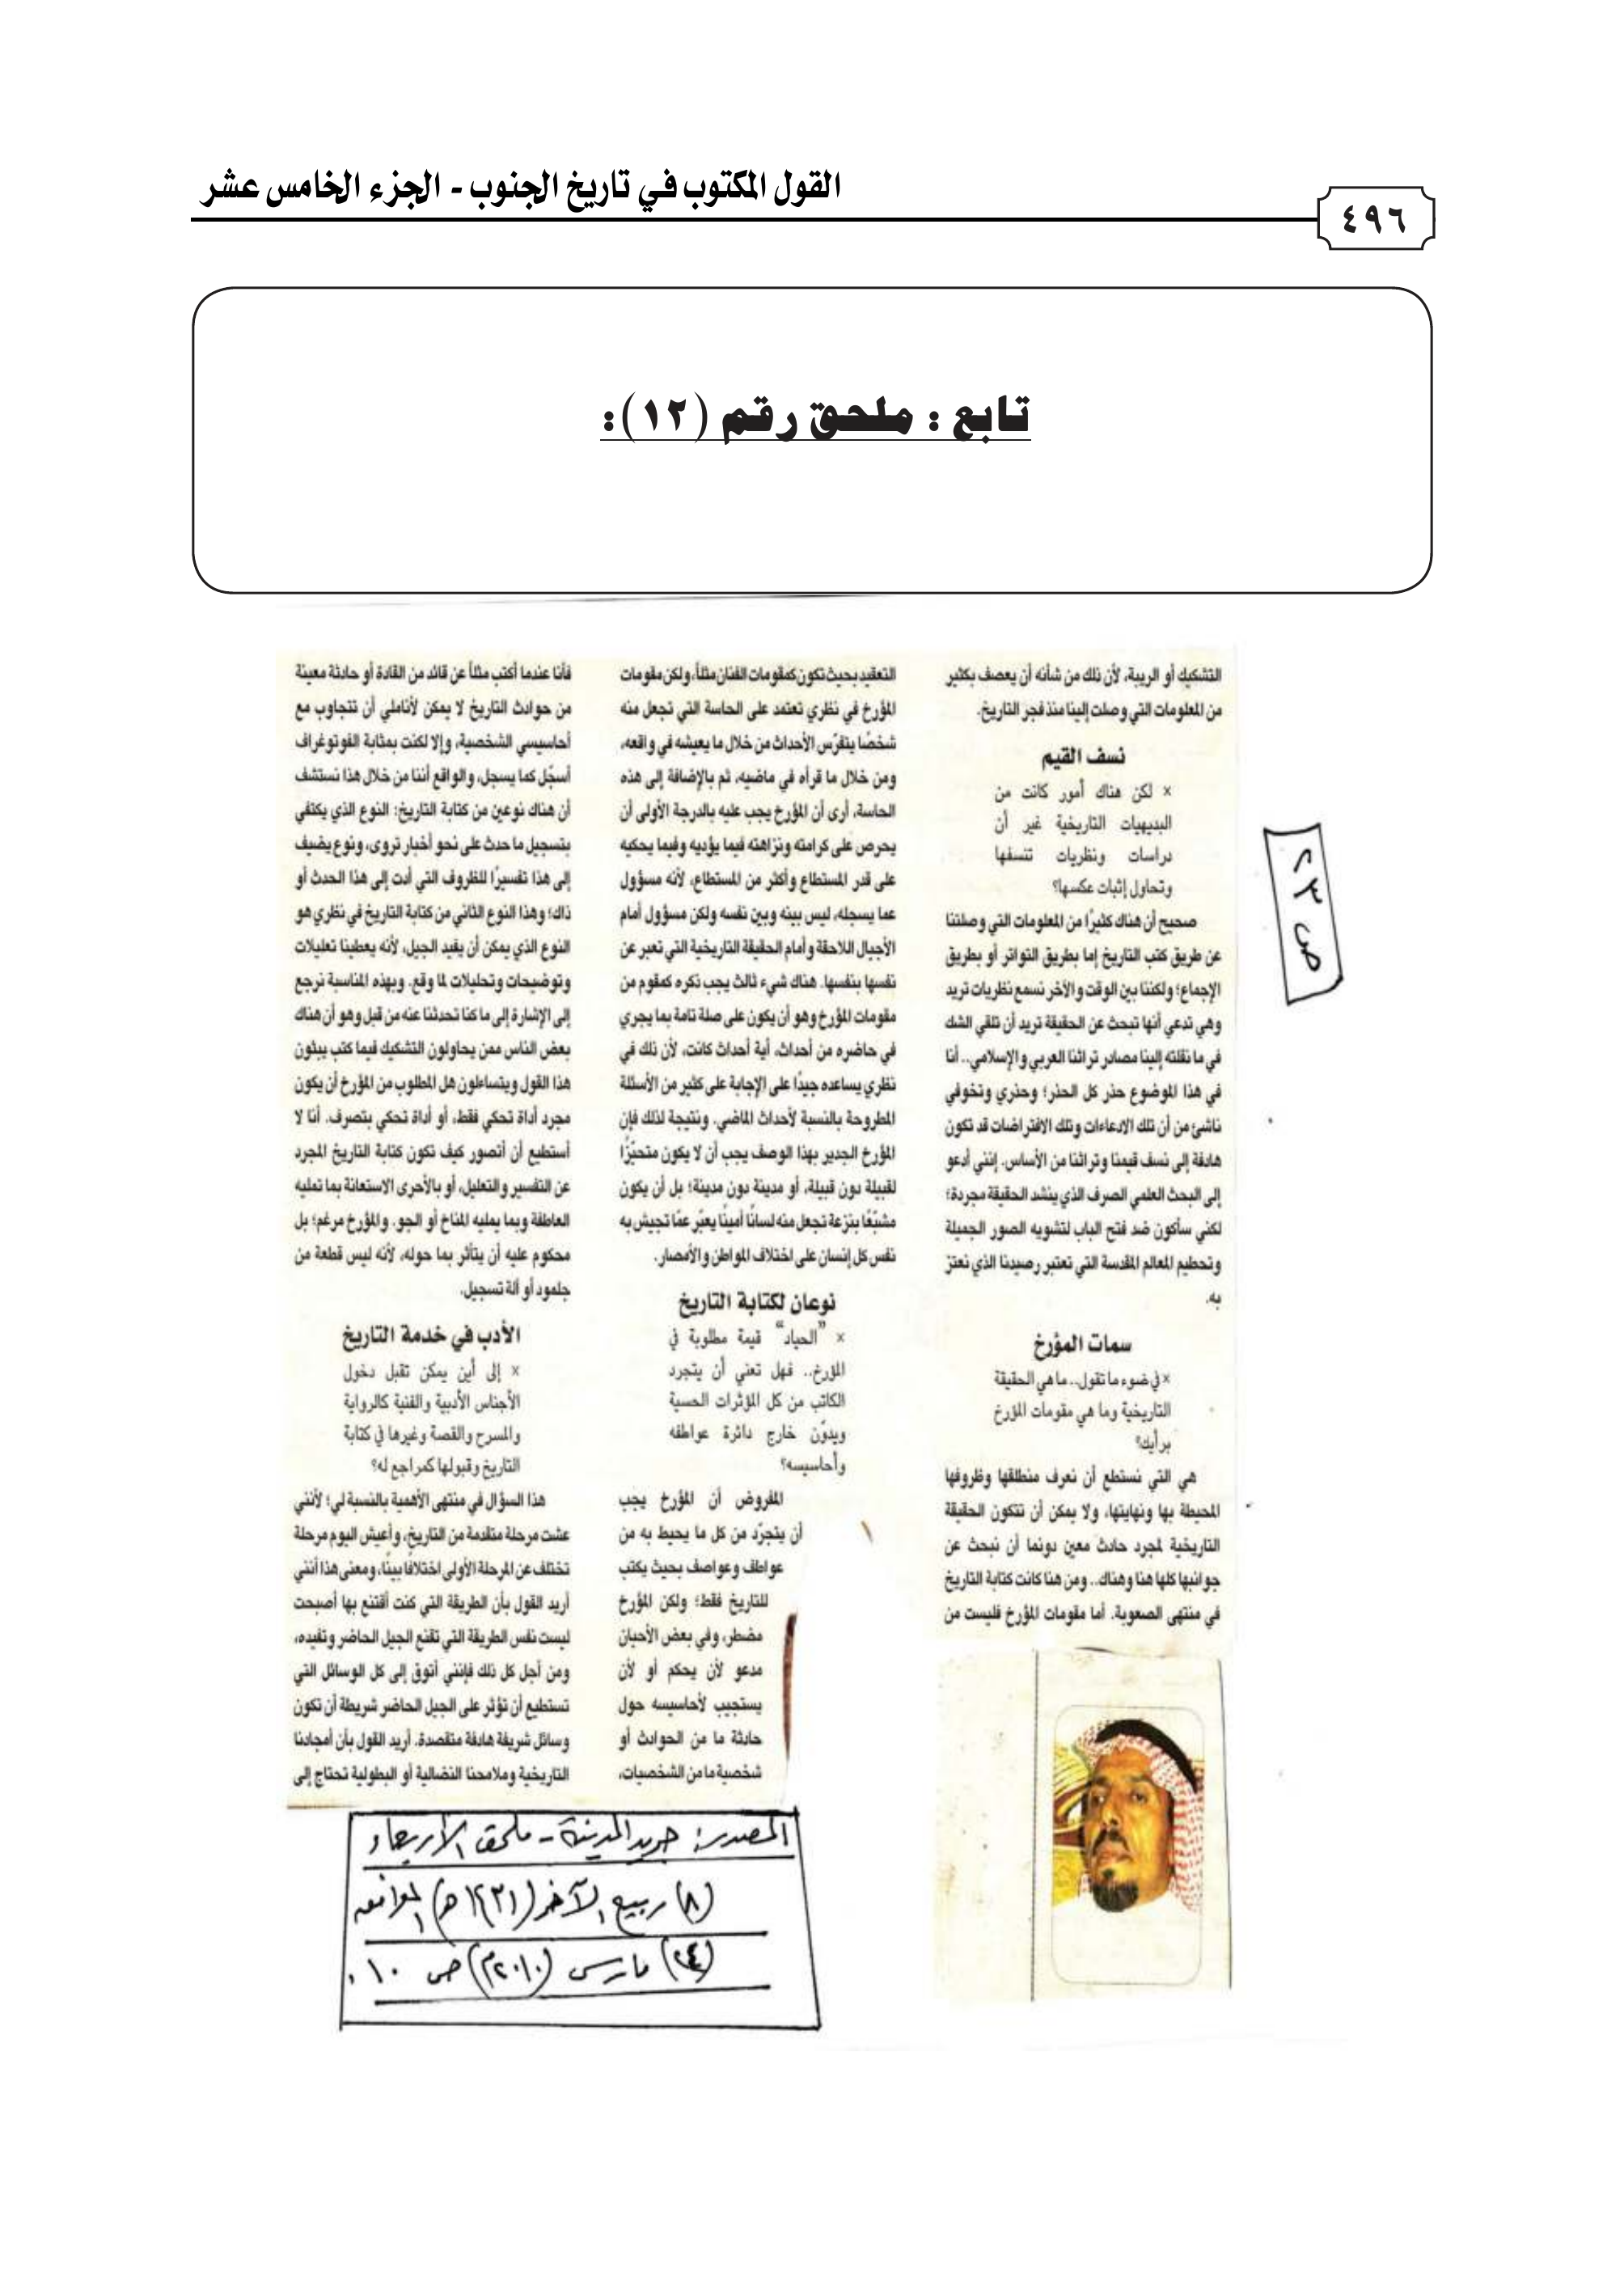 القول المكتوب في تاريخ الجنوب - الجزء الخامس عشر
٤٩٦
تابع : ملحق رقم (١٢):
التشكيك أو الريبة، لأن ذلك من شأنه أن يعصف بكثير
من المعلومات التي وصلت إلينا منذ فجر التاريخ.
نسف القيم
× لكن هناك أمور كانت من
البديهيات التاريخية غير أن
دراسات ونظريات تنسفها
وتحاول إثبات عكسها؟
صحيح أن هناك كثيرًا من المعلومات التي وصلتنا
عن طريق كتب التاريخ إما بطريق التواتر أو بطريق
الإجماع؛ ولكننا بين الوقت والآخر نسمع نظريات تريد
وهي تدعي أنها تبحث عن الحقيقة تريد أن تلقي الشك
في ما نقلته إلينا مصادر تراثنا العربي والإسلامي.. أنا
في هذا الموضوع حذر كل الحذر؛ وحذري وتخوفي
ناشئ من أن تلك الادعاءات وتلك الافتراضات قد تكون
هادفة إلى نسف قيمنا وتراثنا من الأساس. إنني أدعو
إلى البحث العلمي الصرف الذي ينشد الحقيقة مجردة؛
لكني سأكون ضد فتح الباب لتشويه الصور الجميلة
وتحطيم المعالم المقدسة التي تعتبر رصيدنا الذي نعتز
به.
سمات المؤرخ
× في ضوء ما تقول.. ما هي الحقيقة
التاريخية وما هي مقومات المؤرخ
برأيك؟
هي التي نستطع أن نعرف منطلقها وظروفها
المحيطة بها ونهايتها، ولا يمكن أن تتكون الحقيقة
التاريخية لمجرد حادث معين دونما أن نبحث عن
جوانبها كلها هنا وهناك.. ومن هنا كانت كتابة التاريخ
في منتهى الصعوبة. أما مقومات المؤرخ فليست من
التعقيد بحيث تكون كمقومات الفنان مثلاً، ولكن مقومات
المؤرخ في نظري تعتمد على الحاسة التي تجعل منه
شخصًا يتفرّس الأحداث من خلال ما يعيشه في واقعه،
ومن خلال ما قرأه في ماضيه، ثم بالإضافة إلى هذه
الحاسة، أرى أن المؤرخ يجب عليه بالدرجة الأولى أن
يحرص على كرامته ونزاهته فيما يؤديه وفيما يحكيه
على قدر المستطاع وأكثر من المستطاع، لأنه مسؤول
عما يسجله، ليس بينه وبين نفسه ولكن مسؤول أمام
الأجيال اللاحقة وأمام الحقيقة التاريخية التي تعبر عن
نفسها بنفسها. هناك شيء ثالث يجب ذكره كمقوم من
مقومات المؤرخ وهو أن يكون على صلة تامة بما يجري
في حاضره من أحداث، أية أحداث كانت، لأن ذلك في
نظري يساعده جيدًا على الإجابة على كثير من الأسئلة
المطروحة بالنسبة لأحداث الماضي. ونتيجة لذلك فإن
المؤرخ الجدير بهذا الوصف يجب أن لا يكون متحيّزًا
لقبيلة دون قبيلة، أو مدينة دون مدينة؛ بل أن يكون
مشبّعًا بنزعة تجعل منه لسانًا أمينًا يعبّر عمّا تجيش به
نفس كل إنسان على اختلاف المواطن والأمصار.
نوعان لكتابة التاريخ
× "الحياد" قيمة مطلوبة في
المؤرخ.. فهل تعني أن يتجرد
الكاتب من كل المؤثرات الحسية
ويدوّن خارج دائرة عواطفه
وأحاسيسه؟
المفروض أن المؤرخ يجب
أن يتجرّد من كل ما يحيط به من
عواطف وعواصف بحيث يكتب
للتاريخ فقط؛ ولكن المؤرخ
مضطر، وفي بعض الأحيان
مدعو لأن يحكم أو لأن
يستجيب لأحاسيسه حول
حادثة ما من الحوادث أو
شخصية ما من الشخصيات،
فأنا عندما أكتب مثلاً عن قائد من القادة أو حادثة معينة
من حوادث التاريخ لا يمكن لأناملي أن تتجاوب مع
أحاسيسي الشخصية، وإلا لكنت بمثابة الفوتوغراف
أسجّل كما يسجل، والواقع أننا من خلال هذا نستشف
أن هناك نوعين من كتابة التاريخ: النوع الذي يكتفي
بتسجيل ما حدث على نحو أخبار تروى، ونوع يضيف
إلى هذا تفسيرًا للظروف التي أدت إلى هذا الحدث أو
ذاك؛ وهذا النوع الثاني من كتابة التاريخ في نظري هو
النوع الذي يمكن أن يفيد الجيل، لأنه يعطينا تعليلات
وتوضيحات وتحليلات لما وقع. وبهذه المناسبة نرجع
إلى الإشارة إلى ما كنا تحدثنا عنه من قبل وهو أن هناك
بعض الناس ممن يحاولون التشكيك فيما كتب يبثون
هذا القول ويتساءلون هل المطلوب من المؤرخ أن يكون
مجرد أداة تحكي فقط، أو أداة تحكي بتصرف. أنا لا
أستطيع أن أتصور كيف تكون كتابة التاريخ المجرد
عن التفسير والتعليل، أو بالأحرى الاستعانة بما تمليه
العاطفة وبما يمليه المناخ أو الجو. والمؤرخ مرغم؛ بل
محكوم عليه أن يتأثر بما حوله، لأنه ليس قطعة من
جلمود أو آلة تسجيل.
الأدب في خدمة التاريخ
× إلى أين يمكن تقبل دخول
الأجناس الأدبية والفنية كالرواية
والمسرح والقصة وغيرها في كتابة
التاريخ وقبولها كمراجع له؟
هذا السؤال في منتهى الأهمية بالنسبة لي؛ لأنني
عشت مرحلة متقدمة من التاريخ، وأعيش اليوم مرحلة
تختلف عن المرحلة الأولى اختلافًا بينًا، ومعنى هذا أنني
أريد القول بأن الطريقة التي كنت أقتنع بها أصبحت
ليست نفس الطريقة التي تقنع الجيل الحاضر وتفيده،
ومن أجل كل ذلك فإنني أتوق إلى كل الوسائل التي
تستطيع أن تؤثر على الجيل الحاضر شريطة أن تكون
وسائل شريفة هادفة متقصدة. أريد القول بأن أمجادنا
التاريخية وملامحنا النضالية أو البطولية تحتاج إلى
ص ٢٣
المصدر: جريد المدينة - ملحق الأربعاء
(٨) ربيع الآخر (١٤٣١هـ) الموافق
(٢٤) مارس (٢٠١٠م) ص ١٠.